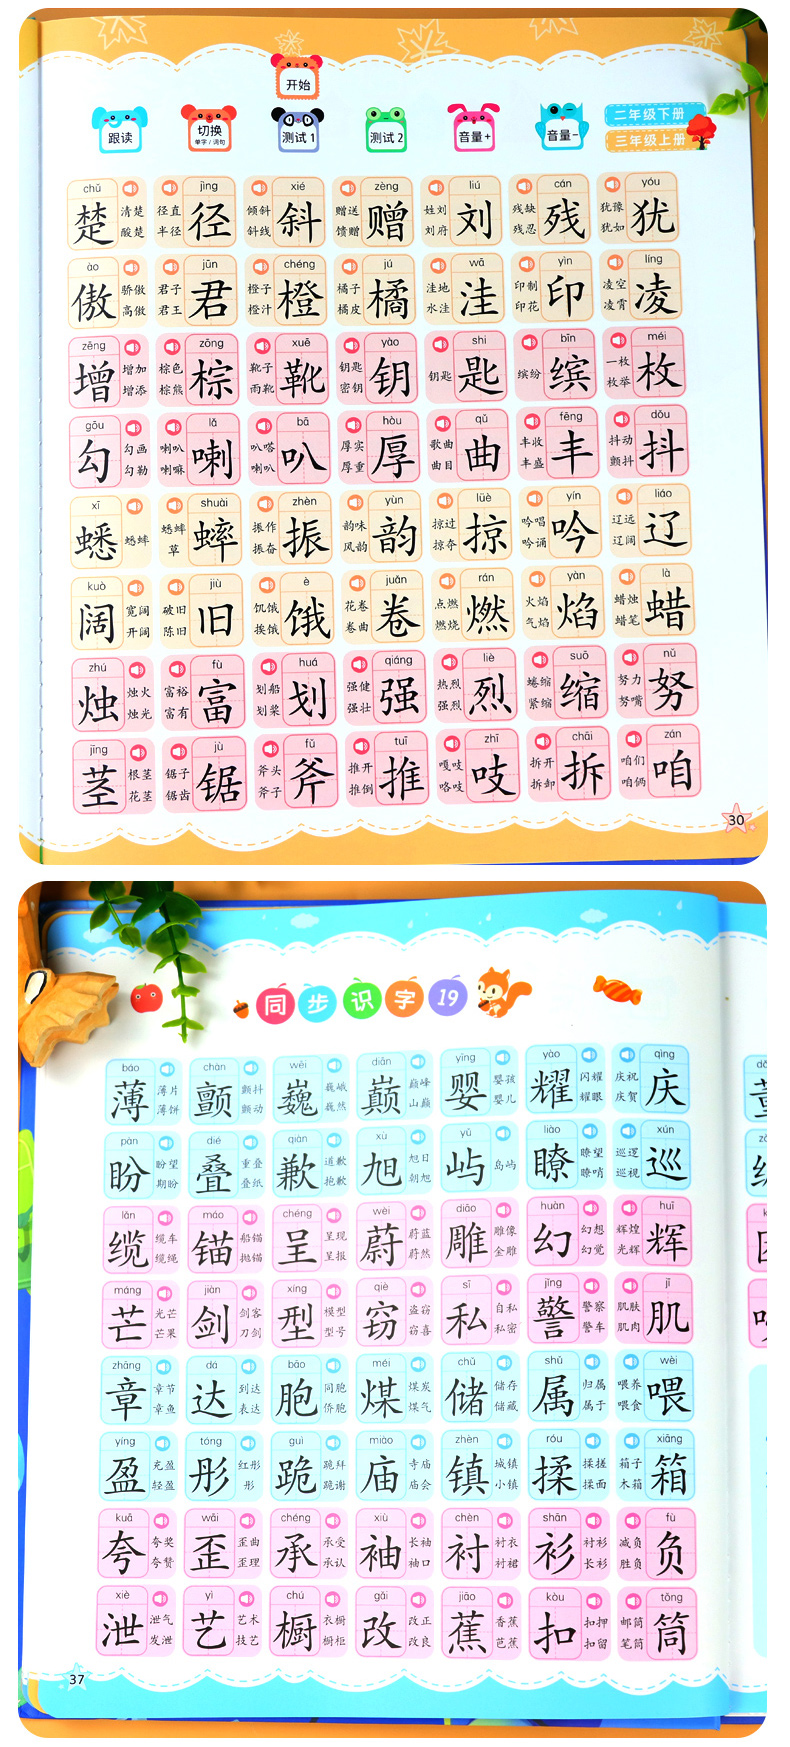 开始
跟读
切换
单字/词句
测试1
测试2
音量+
音量-
二年级下册
三年级上册
chǔ 楚 清楚 酸楚
jìng 径 径直 半径
xié 斜 倾斜 斜线
zèng 赠 赠送 馈赠
liú 刘 姓刘 刘府
cán 残 残缺 残忍
yóu 犹 犹豫 犹如
ào 傲 骄傲 高傲
jūn 君 君子 君王
chéng 橙 橙子 橙汁
jú 橘 橘子 橘皮
wā 洼 洼地 水洼
yìn 印 印制 印花
líng 凌 凌空 凌霄
zēng 增 增加 增添
zōng 棕 棕色 棕熊
xuē 靴 靴子 雨靴
yào 钥 钥匙 密钥
shi 匙 钥匙
bīn 缤 缤纷
méi 枚 一枚 枚举
gōu 勾 勾画 勾勒
lǎ 喇 喇叭 喇嘛
bā 叭 叭嗒 喇叭
hòu 厚 厚实 厚重
qǔ 曲 歌曲 曲目
fēng 丰 丰收 丰盛
dǒu 抖 抖动 颤抖
xī 蟋 蟋蟀
shuài 蟀 蟋蟀草
zhèn 振 振作 振奋
yùn 韵 韵味 风韵
lüè 掠 掠过 掠夺
yín 吟 吟唱 吟诵
liáo 辽 辽远 辽阔
kuò 阔 宽阔 开阔
jiù 旧 破旧 陈旧
è 饿 饥饿 挨饿
juǎn 卷 花卷 卷曲
rán 燃 点燃 燃烧
yàn 焰 火焰 气焰
là 蜡 蜡烛 蜡笔
zhú 烛 烛火 烛光
fù 富 富裕 富有
huá 划 划船 划桨
qiáng 强 强健 强壮
liè 烈 热烈 强烈
suō 缩 蜷缩 紧缩
nǔ 努 努力 努嘴
jīng 茎 根茎 花茎
jù 锯 锯子 锯齿
fǔ 斧 斧头 斧子
tuī 推 推开 推倒
zhī 吱 嘎吱 咯吱
chāi 拆 拆开 拆卸
zán 咱 咱们 咱俩
30
同步识字19
báo 薄 薄片 薄饼
chàn 颤 颤抖 颤动
wēi 巍 巍峨 巍然
diān 巅 巅峰 山巅
yīng 婴 婴孩 婴儿
yào 耀 闪耀 耀眼
qìng 庆 庆祝 庆贺
pàn 盼 盼望 期盼
dié 叠 重叠 叠纸
qiàn 歉 道歉 抱歉
xù 旭 旭日 朝旭
yǔ 屿 岛屿
liào 瞭 瞭望 瞭哨
xún 巡 巡逻 巡视
lǎn 缆 缆车 缆绳
máo 锚 船锚 抛锚
chéng 呈 呈现 呈报
wèi 蔚 蔚蓝 蔚然
diāo 雕 雕像 金雕
huàn 幻 幻想 幻觉
huī 辉 辉煌 光辉
máng 芒 光芒 芒果
jiàn 剑 剑客 刀剑
xíng 型 模型 型号
qiè 窃 盗窃 窃喜
sī 私 自私 私密
jǐng 警 警察 警车
jī 肌 肌肤 肌肉
zhāng 章 章节 章鱼
dá 达 到达 表达
bāo 胞 同胞 侨胞
méi 煤 煤炭 煤气
chǔ 储 储存 储藏
shǔ 属 归属 属于
wèi 喂 喂养 喂食
yíng 盈 充盈 轻盈
tóng 彤 红彤彤
guì 跪 跪拜 跪谢
miào 庙 寺庙 庙会
zhèn 镇 城镇 小镇
róu 揉 揉搓 揉面
xiāng 箱 箱子 木箱
kuā 夸 夸奖 夸赞
wāi 歪 歪曲 歪理
chéng 承 承受 承认
xiù 袖 长袖 袖口
chèn 衬 衬衣 衬裙
shān 衫 衬衫 长衫
fù 负 减负 胜负
xiè 泄 泄气 发泄
yì 艺 艺术 技艺
chú 橱 衣橱 橱柜
gǎi 改 改正 改良
jiāo 蕉 香蕉 芭蕉
kòu 扣 扣押 扣留
tǒng 筒 邮筒 笔筒
37